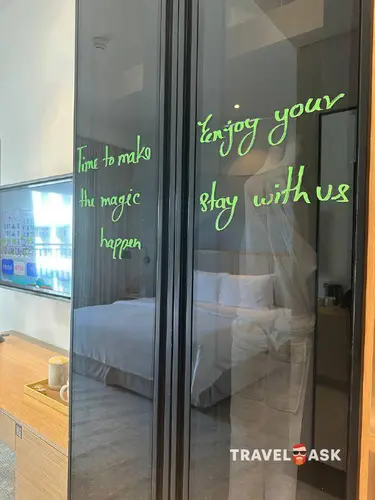 Time to make
the magic
happen
Enjoy your
stay with us
TRAVEL ASK